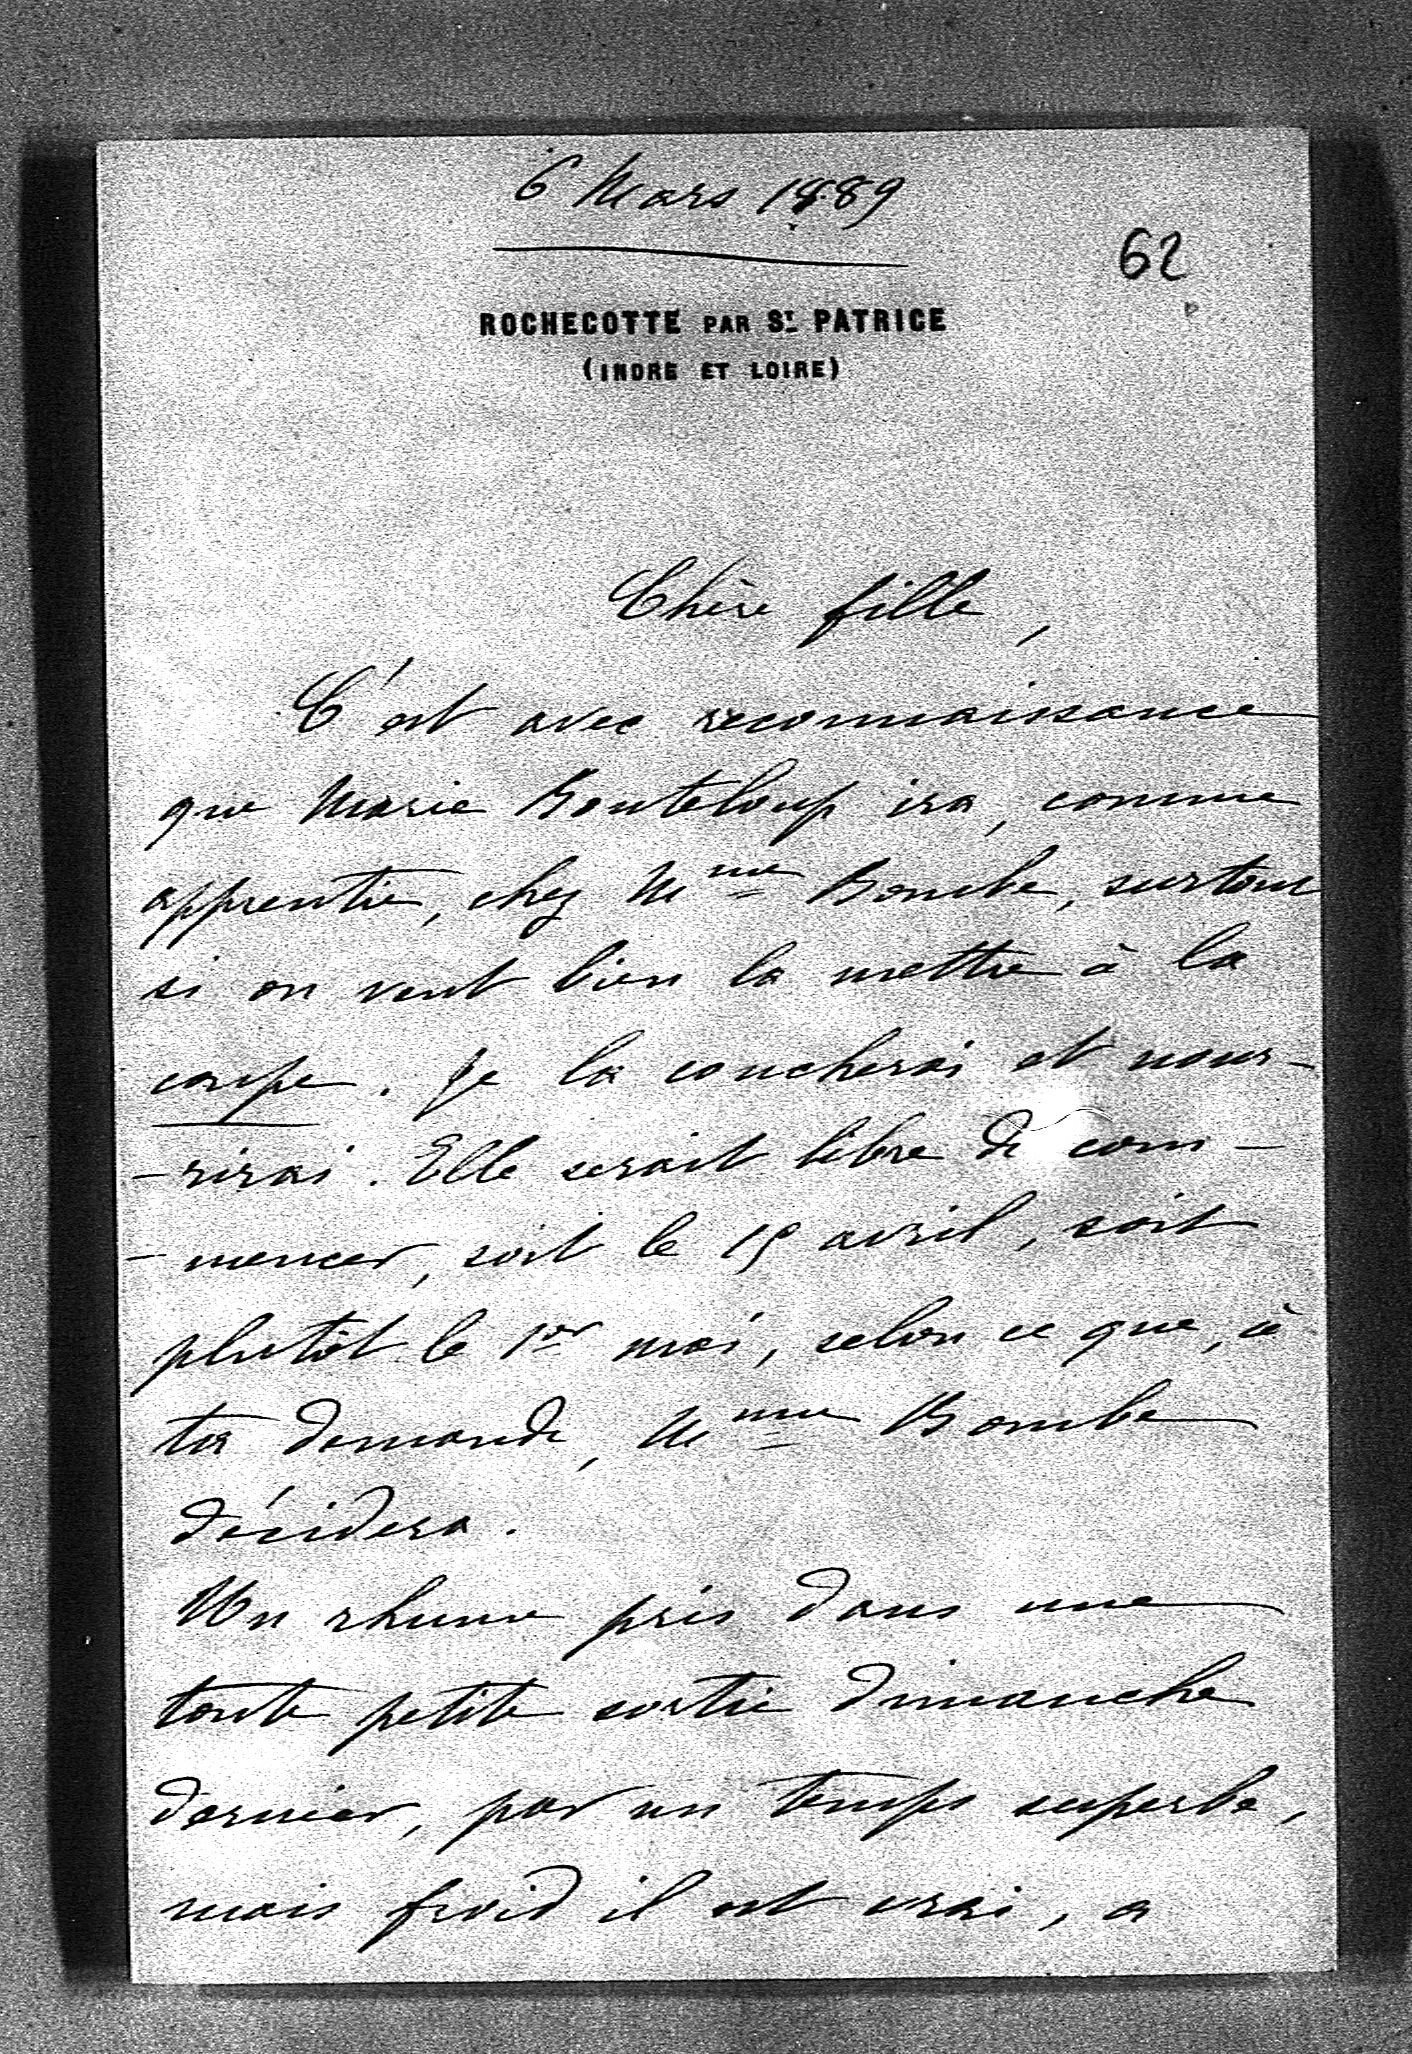 6 Mars 1889
62
ROCHECOTTE PAR ST. PATRICE
(INDRE ET LOIRE)
Chère fille,
C'est avec reconnaissance
que Marie Bouteloup ira, comme
apprentie, chez Mme Bombe, surtout
si on veut bien la mettre à la
coupe. Je la coucherai et nour-
-rirai. Elle serait libre de com-
-mencer, soit le 15 avril, soit
plutôt le 1er mai, selon ce que, à
ta demande, Mme Bombe
décidera.
Un rhume pris dans une
toute petite sortie dimanche
dernier, par un temps superbe,
mais froid il est vrai, a